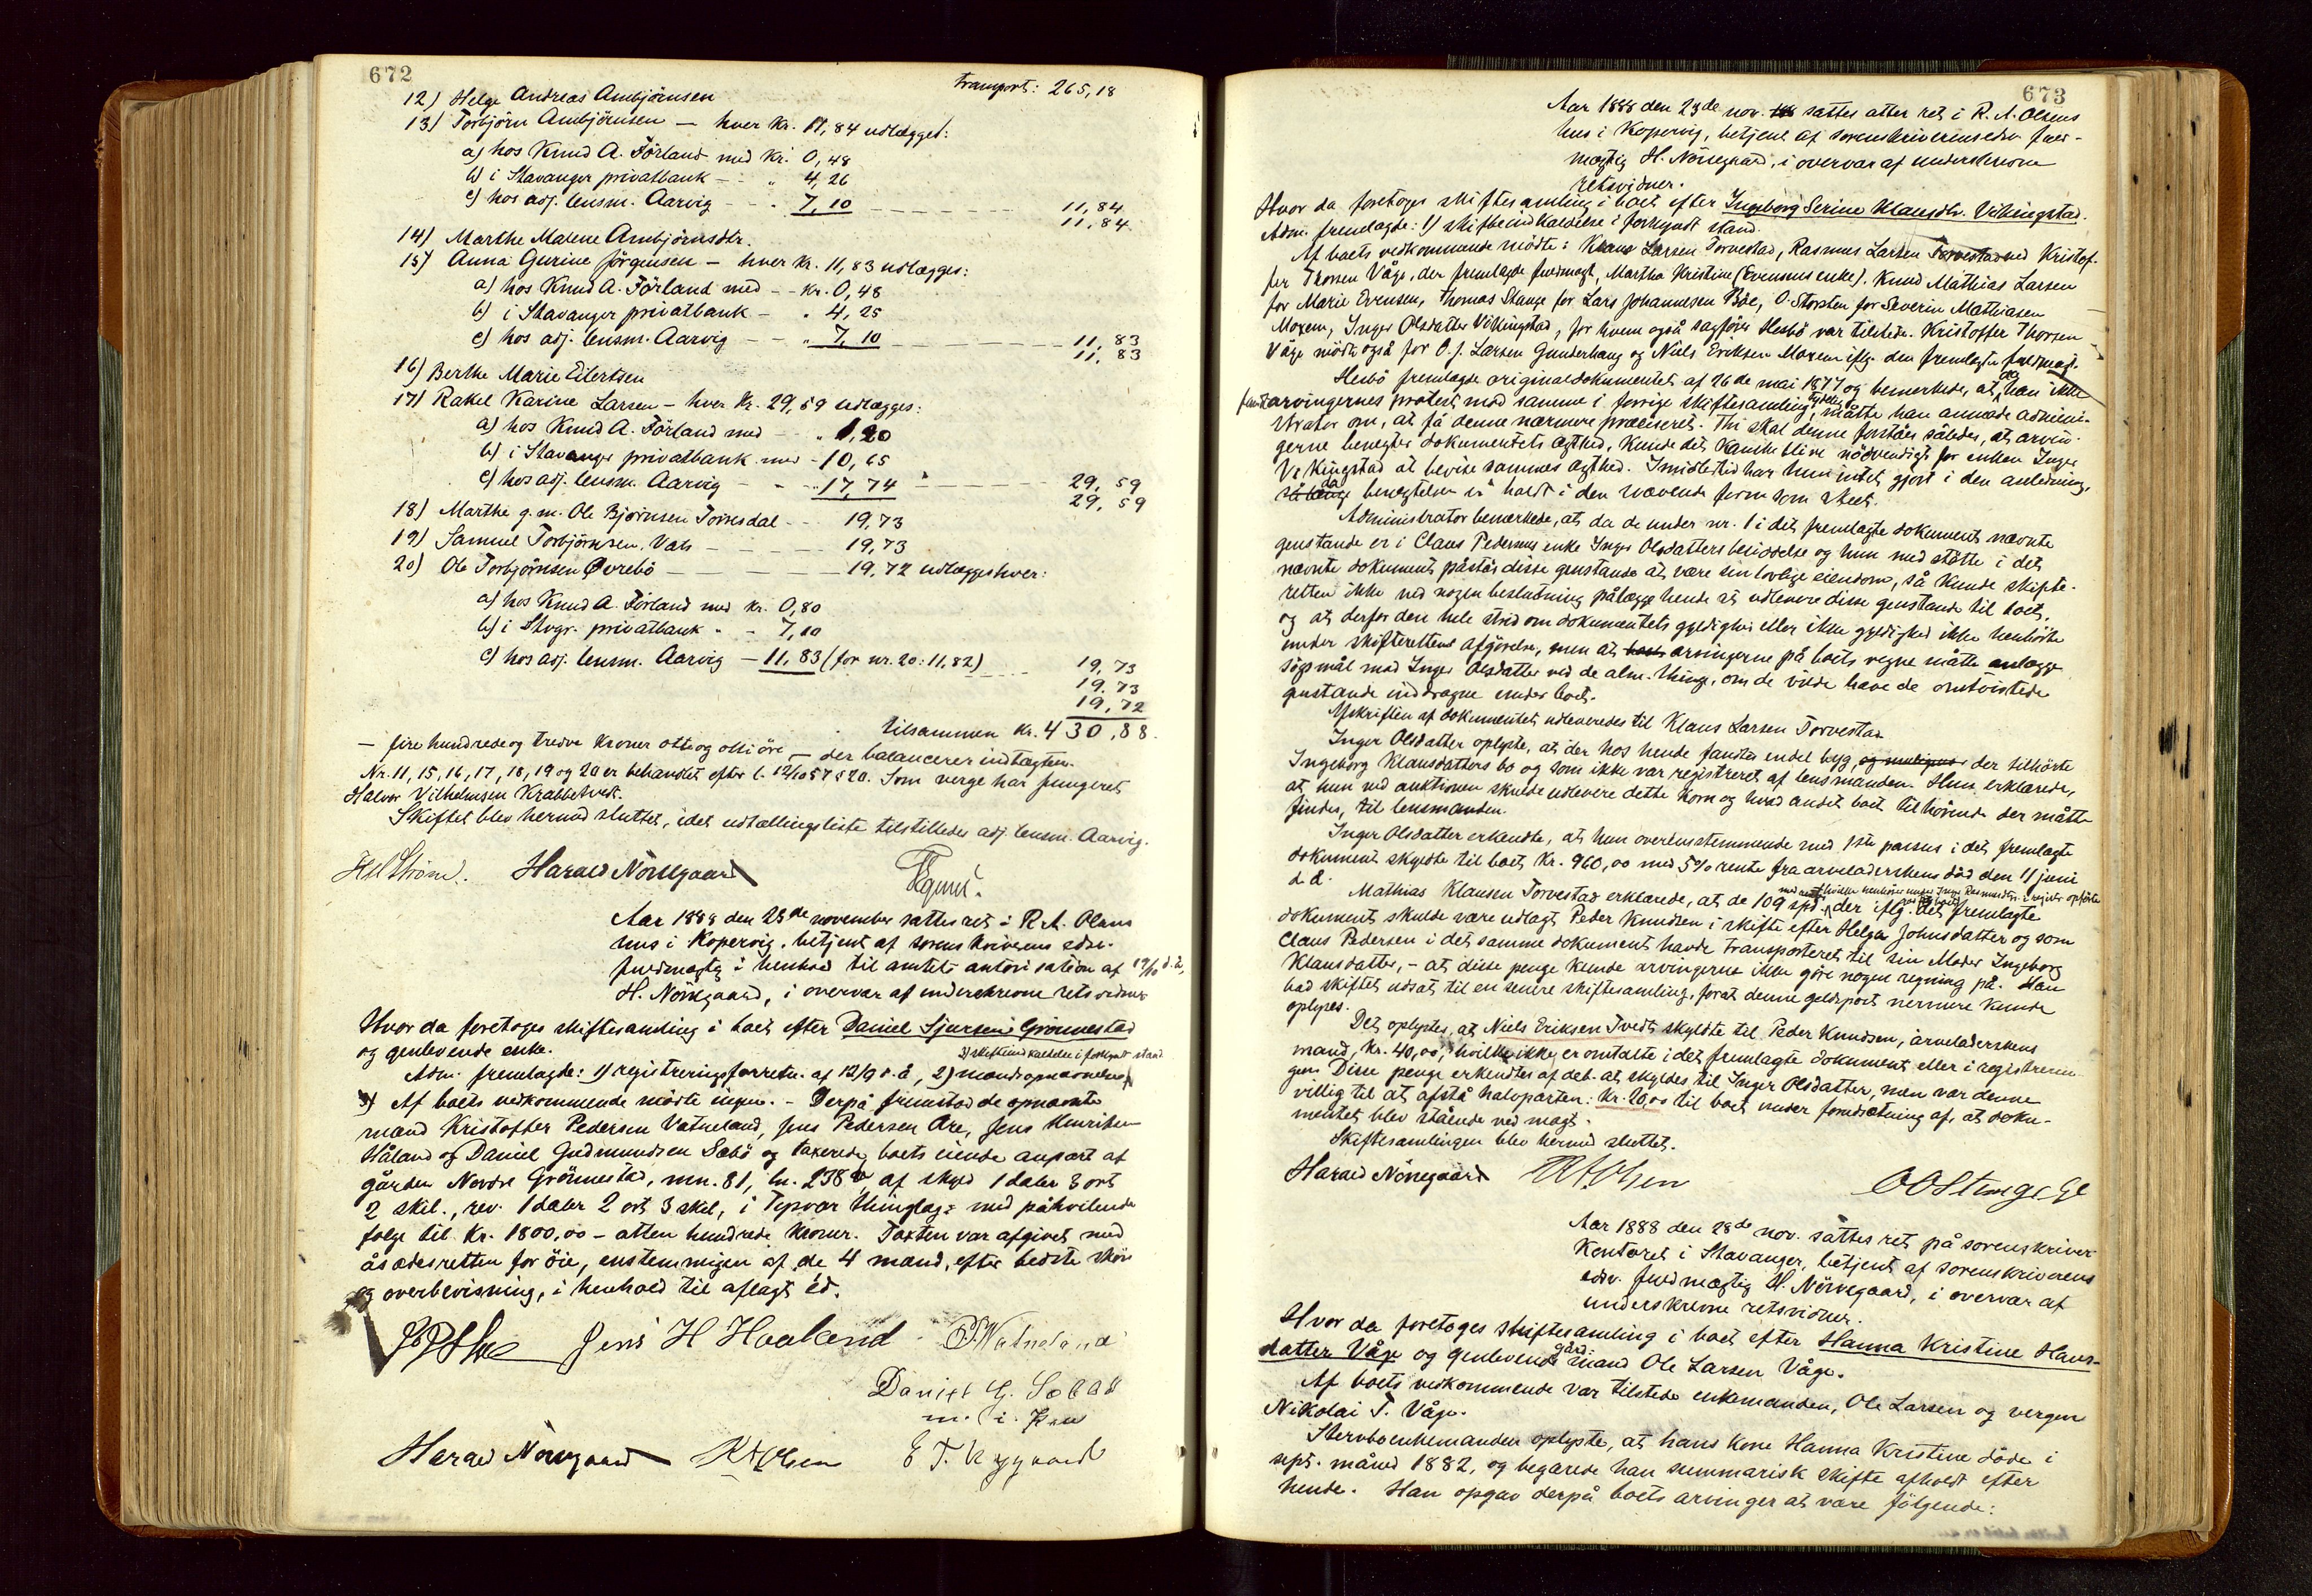 672
transport: 265,18
12) Helge Andreas Ambjörnsen
13) Torbjörn Ambjörnsen — hver kr. 11,84 udlægges:
a) hos Knud A. Förland med kr. 0,48
b) i Stavanger privatbank - - " 4,26
c) hos adj. lensm. Aarvig - - " 7,10 11,84
11,84
14) Marthe Malene Ambjörnsdtr.
15) Anna Gurine Jörgensen — hver kr. 11,83 udlægges:
a) hos Knud A. Förland med - - kr. 0,48
b) i Stavanger privatbank - " 4,25
c) hos adj. lensm. Aarvig - - " 7,10 11,83
11,83
16) Berthe Marie Eilertsen
17) Rakel Karine Larsen — hver kr. 29,59 udlægges:
a) hos Knud A. Förland med - - " 1,20
b) i Stavanger privatbank med - 10,65
c) hos adj. lensm. Aarvig - - " 17,74 29,59
29,59
18) Marthe g. m. Ole Björnsen Torresdal - - 19,73
19) Samuel Torbjörnsen, Vats - - - 19,73
20) Ole Torbjörnsen Øvrebö - - - 19,72 udlægges hver:
a) hos Knud A. Förland med kr. 0,80
b) i Stvgr. privatbank - - 7,10
c) hos adj. lensm. Aarvig — 11,83 (for nr. 20: 11,82) 19,73
19,73
19,72
tilsammen kr. 430,88.
— fire hundrede og tredve kroner otte og otti öre — der balancerer indtægten.
Nr. 11, 15, 16, 17, 18, 19 og 20 er behandlet efter l. 12/10 57 § 20. Som verge har fungeret
Halvor Vilhelmsen Krabbetvedt.
Skiftet blev hermed sluttet, idet udtællingsliste tilstilledes adj. lensm. Aarvig.
Harald Nörregaard
Aar 1888 den 23de november sattes ret i R. A. Olsens
hus i Kopervig, betjent af sorenskriverens edsv.
fuldmægtig i henhold til amtets autorisation af 19/10 d. å,
H. Nörregaard, i overvær af underskrevne retsvidner
Hvor da foretoges skiftesamling i boet efter Daniel Sjursen Grönnestad
og genlevende enke.
2) skifteindkaldelse i forkyndt stand
Adm. fremlagde: 1) registreringsforretn. af 12/9 d. å, 2) mandsopnævnelse
3) Af boets vedkommende mödte ingen. - Derpå fremstod de opnævnte
mænd Kristoffer Pedersen Vatneland, Jens Pedersen Are, Jens Henriksen
Håland og Daniel Gudmundsen Sæbö og taxerede boets eiende anpart af
gården Nordre Grönnestad, mn. 81, ln. 238 a af skyld 1 daler 3 ort
2 skil., rev. 1 daler 2 ort 3 skil, i Tysvær thinglag med påhvilende
følge til kr. 1800,00 - atten hundrede kroner. Taxten var afgivet med
åsædesretten for öie, enstemmigen af de 4 mænd, efter bedste skjön
og overbevisning, i henhold til aflagt ed.
Jens H Haaland P. Watneland
Daniel G. Sæbö
m. i. Pen
Harald Nörregaard RAOlsen E T. Rygaard
673
Aar 1888 den 23de nov. sattes atter ret i R. A. Olsens
hus i Kopervig, betjent af sorenskriverens edsv. fuld-
mægtig H. Nörregaard, i overvær af underskrevne
retsvidner.
Hvor da foretoges skiftesamling i boet efter Ingeborg Serine Klausdtr. Vikingstad.
Adm. fremlagde: 1) skifteindkaldelse i forkyndt stand.
Af boets vedkommende mödte: Klaus Larsen Torvestad, Rasmus Larsen Torvestad ved Kristof-
fer Thorsen Våge, der fremlagde fuldmagt, Martha Kristine (Evensens enke), Knud Mathias Larsen
for Marie Evensen, Thomas Stange for Lars Johannesen Böe, O. Storsten for Severin Mathiasen
Moxem, Inger Olsdatter Vikingstad, for hvem også sagförer Hesbö var tilstede. Kristoffer Thorsen
Våge mödte også for O. J. Larsen Gunderhaug og Niels Eriksen Moxem iflg. den fremlagte fuldmagt.
Hesbö fremlagde originaldokumentet af 26de mai 1877 og bemerkede, at da han ikke
fandt arvingernes protest mod samme i forrige skiftesamling tydelig, måtte han anmode admini-
strator om, at få denne nærmere præciseret. Thi skal denne forståes således, at arvin-
gerne benegter dokumentets ægthed, kunde det kanske blive nödvendigt for enken Inger
Vikingstad at bevise sammes ægthed. Imidlertid har hun intet gjort i den anledning,
så længe da benegtelsen er holdt i den svævende form som skeet.
Administrator bemerkede, at da de under nr. 1 i det fremlagte dokument nævnte
genstande er i Claus Pedersens enke Inger Olsdatters besiddelse og hun med støtte i det
nævnte dokument påstår disse genstande at være sin lovlige eiendom, så kunde skifte-
retten ikke ved nogen beslutning pålægge hende at udlevere disse genstande til boet,
og at derfor den hele strid om dokumentets gyldighed eller ikke gyldighed ikke henhörte
under skifterettens afgjörelse, men at arvingerne på boets vegne måtte anlægge
sögsmål mod Inger Olsdatter ved de alm. thinge, om de vilde have de omtvistede
genstande inddragne under boet.
Afskriften af dokumentet udleveredes til Klaus Larsen Torvestad
Inger Olsdatter oplyste, at der hos hende fantes endel byg, og muligens der tilhörte
Ingeborg Klausdatters bo og som ikke var registreret af lensmanden. Hun erklærede,
at hun ved auktionen skulde udlevere dette korn og hvad andet boet tilhörende der måtte
findes, til lensmanden.
Inger Olsdatter erkendte, at hun overensstemmende med 1ste passus i det fremlagte
dokument skyldte til boet kr. 960,00 med 5% rente fra arveladerskens död den 11 juni
d. å.
Mathias Klausen Torvestad erklærede, at de 109 spd. der iflg. det fremlagte
dokument skulde være udlagt Peder Knudsen i skifte efter Helga Johnsdatter og som
Claus Pedersen i det samme dokument havde transporteret til sin Moder Ingeborg
Klausdatter, - at disse penge kunde arvingerne ikke göre nogen regning på. Han
bad skiftet udsat til en senere skiftesamling, forat denne geldspost nærmere kunde
oplyses.
Det oplystes, at Niels Eriksen Tvedt skyldte til Peder Knudsen, arveladerskens
mand, kr. 40,00, hvilke ikke er omtalte i det fremlagte dokument eller i registrerin-
gen. Disse penge erkendtes af deb. at skyldes til Inger Olsdatter, men var denne
villig til at afstå halvparten: kr. 20,00 til boet under forudsætning af, at doku-
mentet blev stående ved magt.
Skiftesamlingen blev hermed sluttet.
Harald Nörregaard RAOlsen
Aar 1888 den 28de nov. sattes ret på sorenskriver-
kontoret i Stavanger, betjent af sorenskriverens
edsv. fuldmægtig H. Nörregaard, i overvær af
underskrevne retsvidner.
Hvor da foretoges skiftesamling i boet efter Hanna Kristine Hans-
datter Våge og genlevende gård- mand Ole Larsen Våge.
Af boets vedkommende var tilstede enkemanden, Ole Larsen og vergen
Nikolai T. Våge.
Stervboenkemanden oplyste, at hans kone Hanna Kristine döde i
sept. måned 1882, og begærede han summarisk skifte afholdt efter
hende. Han opgav derpå boets arvinger at være fölgende: